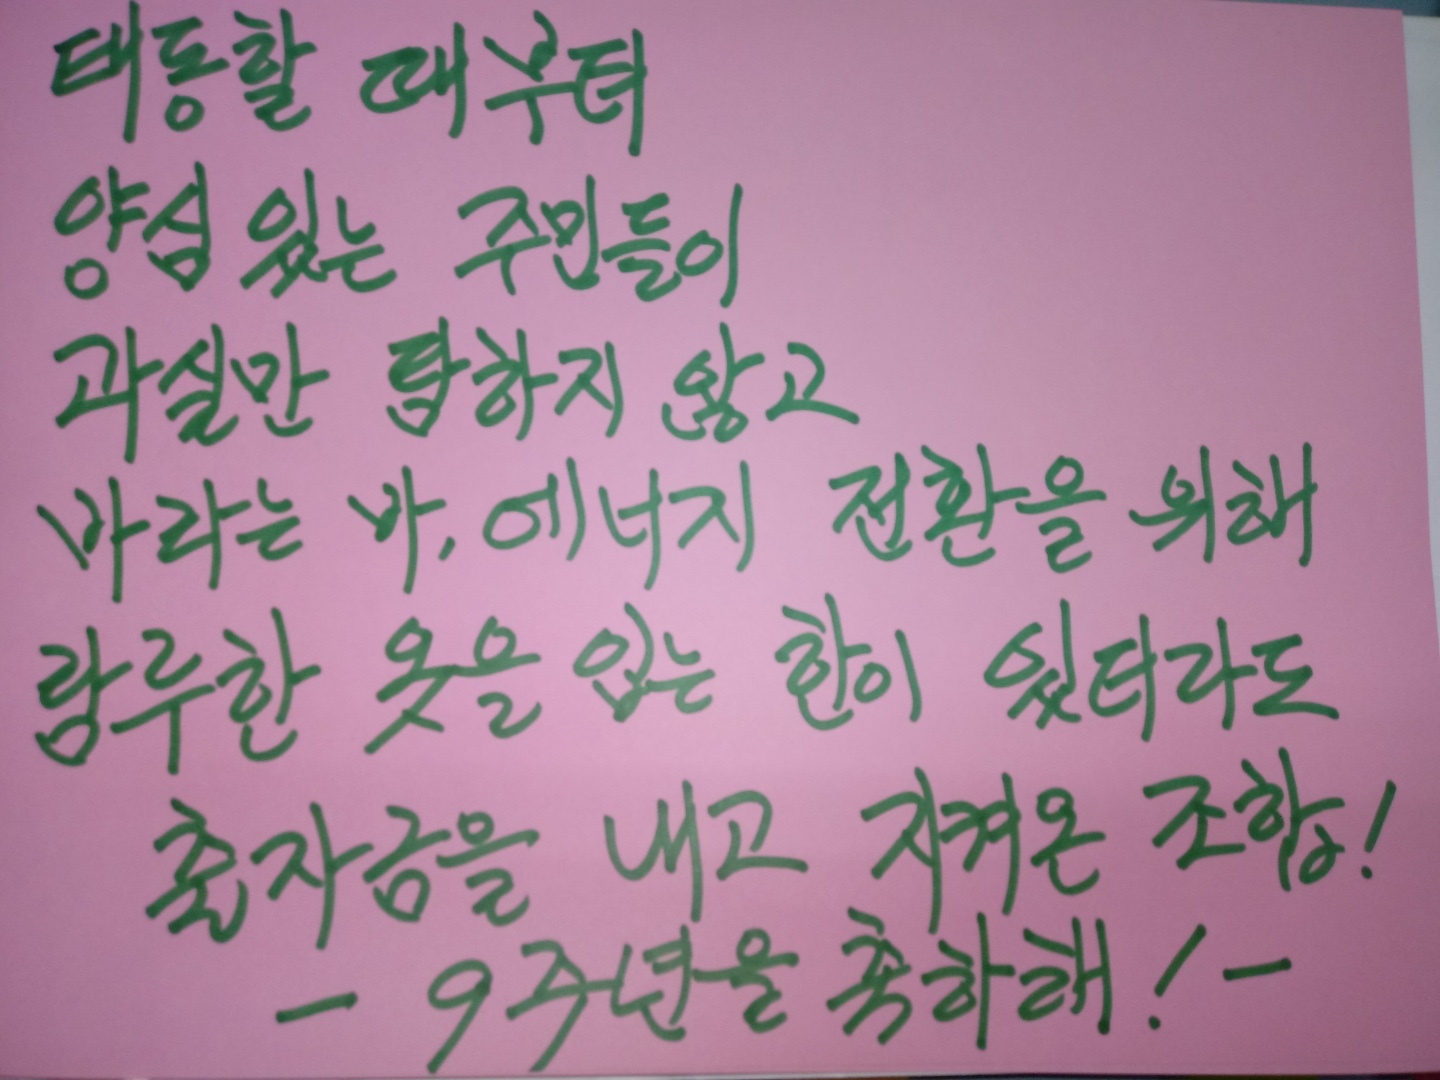 태동할 때부터
양심 있는 주민들이
과실만 탐하지 않고
바라는 바, 에너지 전환을 위해
람루한 옷을 입는 한이 있터라도
출자금을 내고 지켜온 조합!
- 9주년을 축하해! -